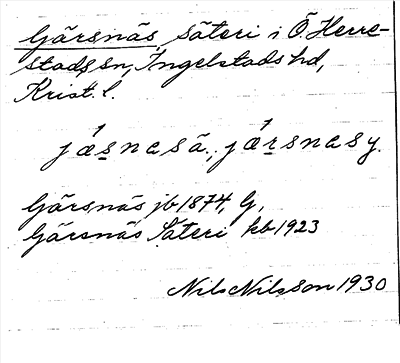 Gärsnäs, säteri i Ö. Herre-
stads sn, Ingelstads hd,
Krist. l.
jǽsnasä., jǽrsnasy.
Gärsnäs jb 1874, G,
Gärsnäs Säteri kb 1923
Nils Nilsson 1930